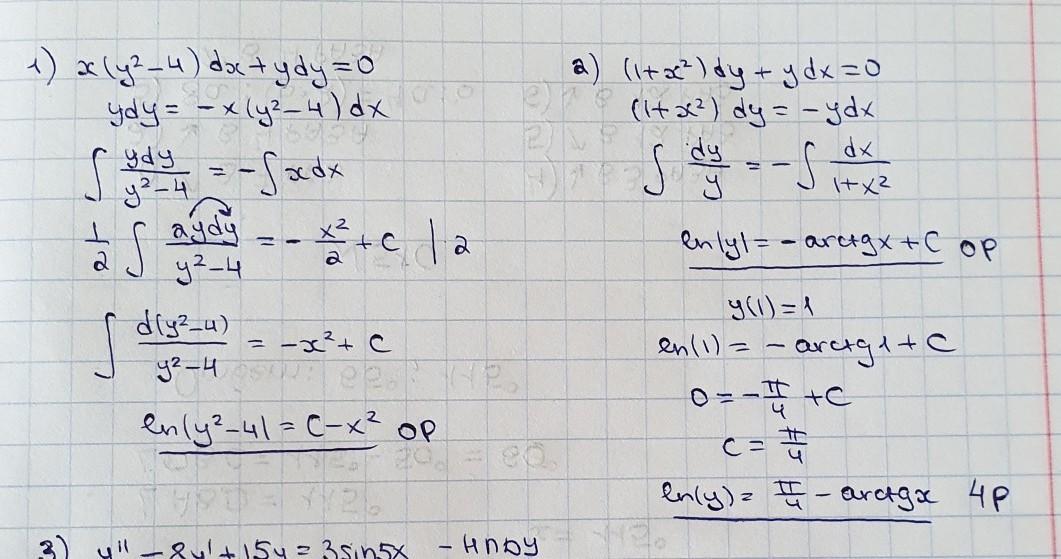 1) x(y²-4)dx+ydy=0
ydy= -x(y²-4)dx
∫ ydy/(y²-4) = -∫xdx
1/2 ∫ 2ydy/(y²-4) = - x²/2 + C | 2
∫ d(y²-4)/(y²-4) = -x²+ C
ln|y²-4| = C-x² ОР
2) (1+x²)dy+ydx=0
(1+x²)dy = -ydx
∫ dy/y = -∫ dx/(1+x²)
ln|y|= -arctgx+C ОР
y(1)=1
ln(1)= -arctg1+C
0=-π/4 +C
C= π/4
ln(y)= π/4 - arctgx ЧР
3) y'' - 8y' + 15y = 3sin5x - ЛНДУ